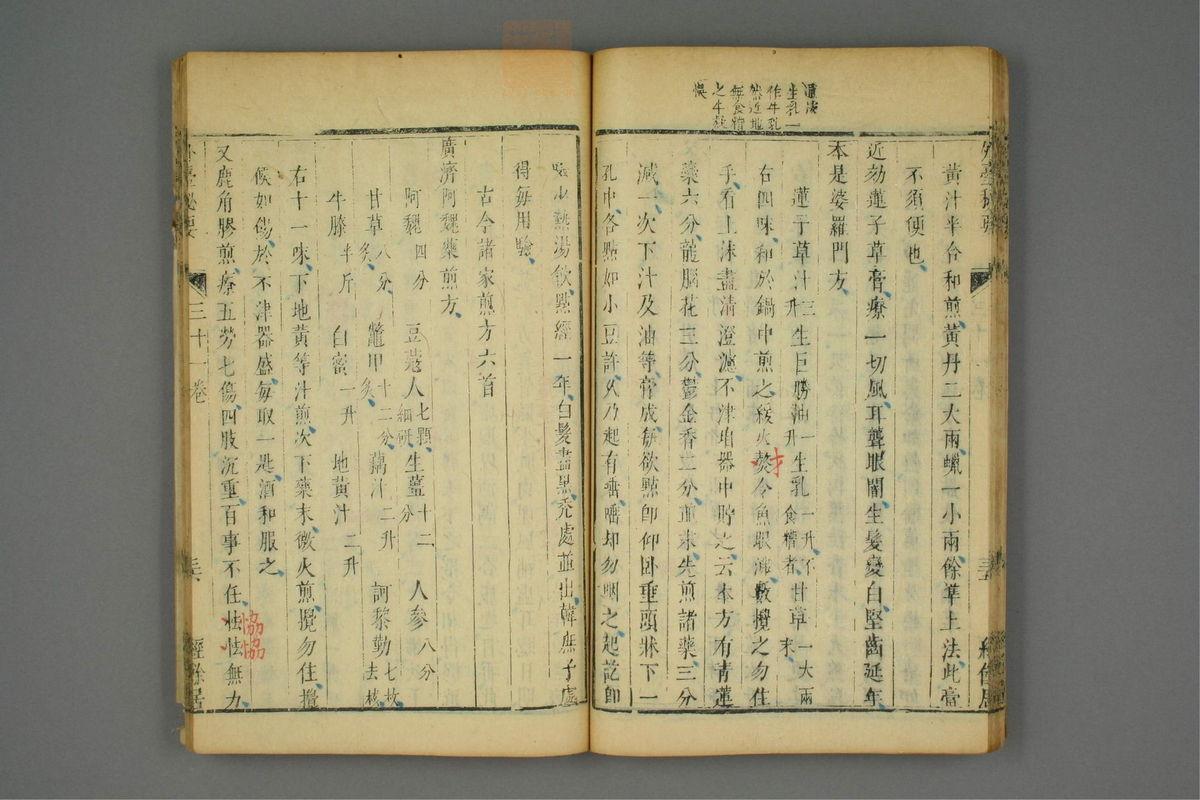 黃汁半合和煎黃丹二大兩蠟一小兩餘準上法此膏
不須便也
近効蓮子草膏療一切風耳聾眼闇生髮變白堅齒延年
本是婆羅門方
蓮子草汁三升生巨勝油一升生乳一升不食糟者甘草一大兩末
右四味和於鍋中煎之緩火熬令魚眼沸數攪之勿住
手看上沫盡清澄濾不津垍器中貯之云本方有青蓮
藥六分龍腦花三分鬱金香二分並末先煎諸藥三分
減一次下汁及油等膏成每欲點即仰卧垂頭牀下一
孔中各點如小豆許久乃起有唾唾却勿咽之起訖即
啜少熱湯飲點經一年白髮盡黑禿處並出韓庶子處
得每用驗
古今諸家煎方六首
廣濟阿魏藥煎方
阿魏四分 豆蔻人七顆細研 生薑十二分 人參八分
甘草八分炙 鼈甲十二分炙 藕汁二升 訶黎勒七枚去核
牛膝半斤 白蜜一升 地黃汁二升
右十一味下地黃等汁煎次下藥末微火煎攪勿住攪
候如餳於不津器盛每取一匙酒和服之
又鹿角膠煎療五勞七傷四肢沉重百事不任怯怯無力
恊恊
外臺秘要
三十一卷
經餘居